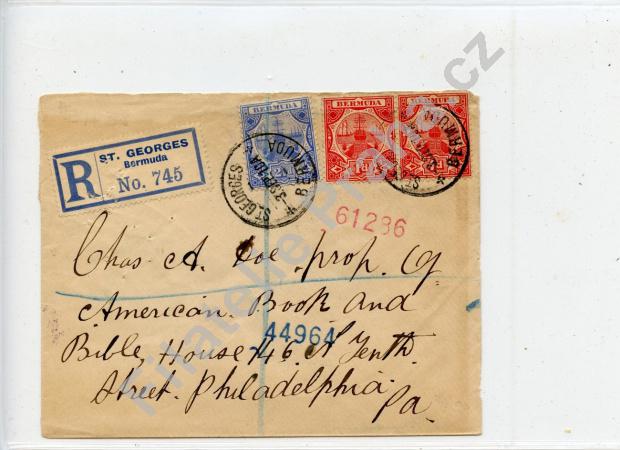 ST. GEORGES
Bermuda
R No. 745
BERMUDA
BERMUDA
BERMUDA
ST. GEORGES BERMUDA
BERMUDA
61286
Chas A. Doe. prop. of
American. Book and
44964
Bible, House 46 N Tenth.
Street. Philadelphia.
Pa.